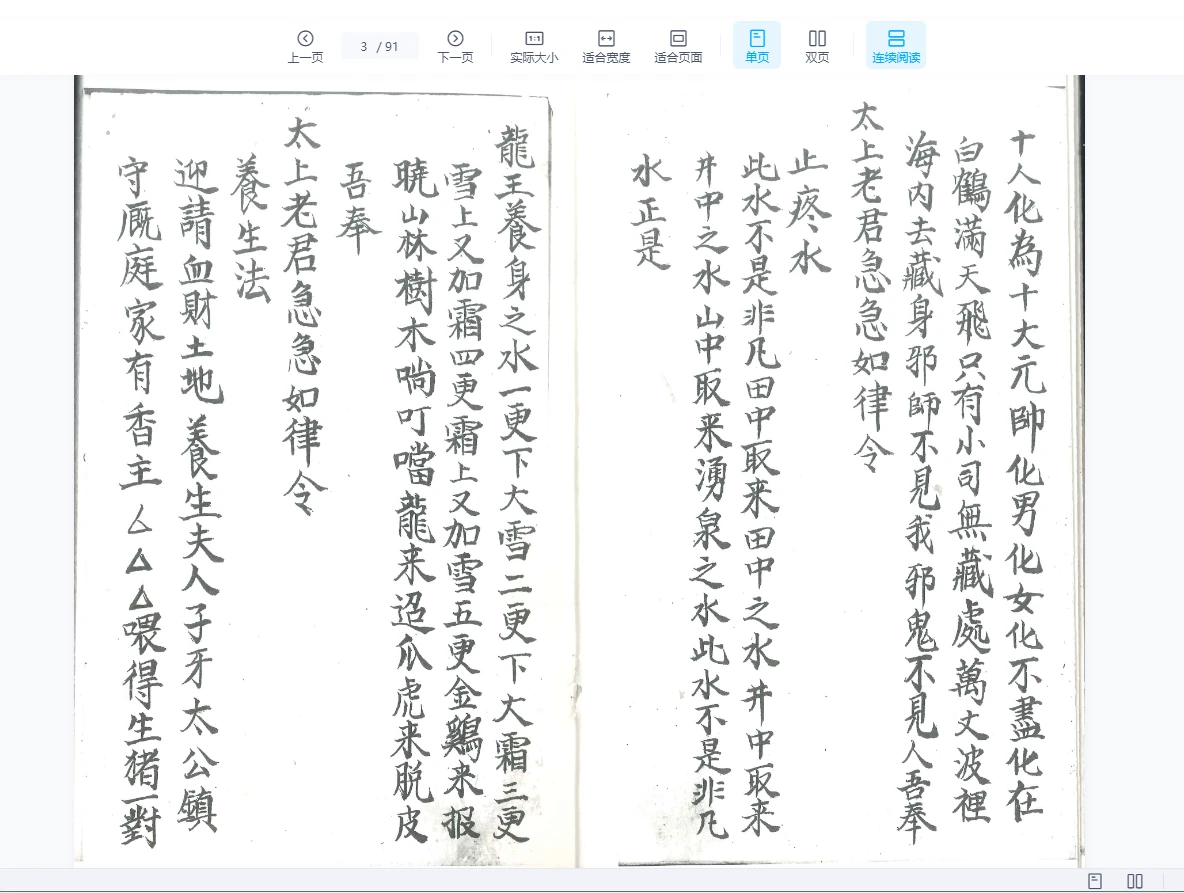 上一页
3 / 91
下一页
1:1
实际大小
适合宽度
适合页面
单页
双页
连续阅读
十人化為十大元帥化男化女化不盡化在
白鶴滿天飛只有小司無藏處萬丈波裡
海内去藏身邪師不見我邪鬼不見人吾奉
太上老君急急如律令
止疼水
此水不是非凡田中取来田中之水井中取来
井中之水山中取来湧泉之水此水不是非凡
水正是
龍王養身之水一更下大雪二更下大霜三更
雪上又加霜四更霜上又加雪五更金鷄来报
曉山林樹木啃叮噹龍来迢爪虎来脱皮
吾奉
太上老君急急如律令
養生法
迎請血財土地養生夫人子牙太公鎮
守厩庭家有香主△△△喂得生猪一對